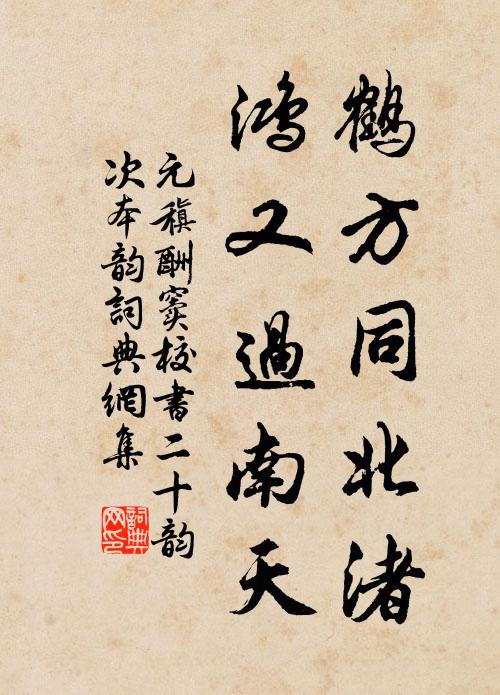 鶴方同北渚
鴻又過南天
元稹酬竇校書二十韵
次本韵詞典網集
詞典网印